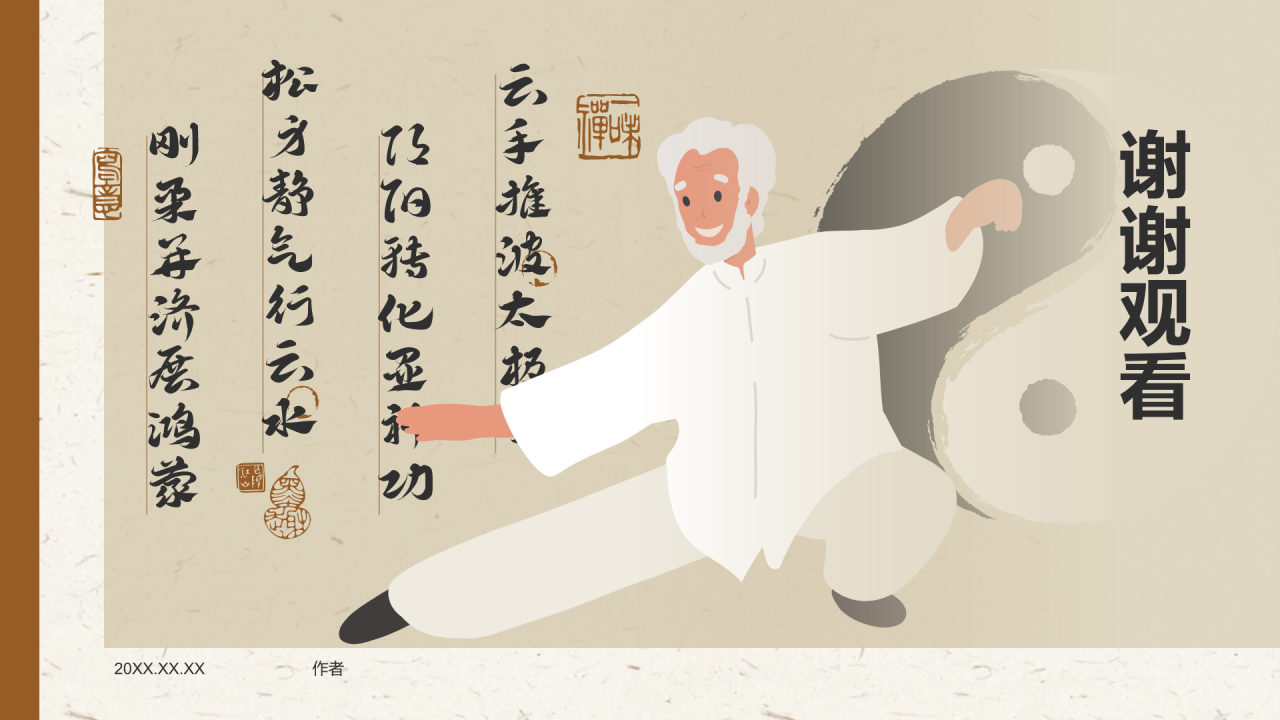 谢谢观看
一味禪
云手推波太极
阴阳转化显神功
松身静气行云水
刚柔并济展鸿蒙
20XX.XX.XX
作者